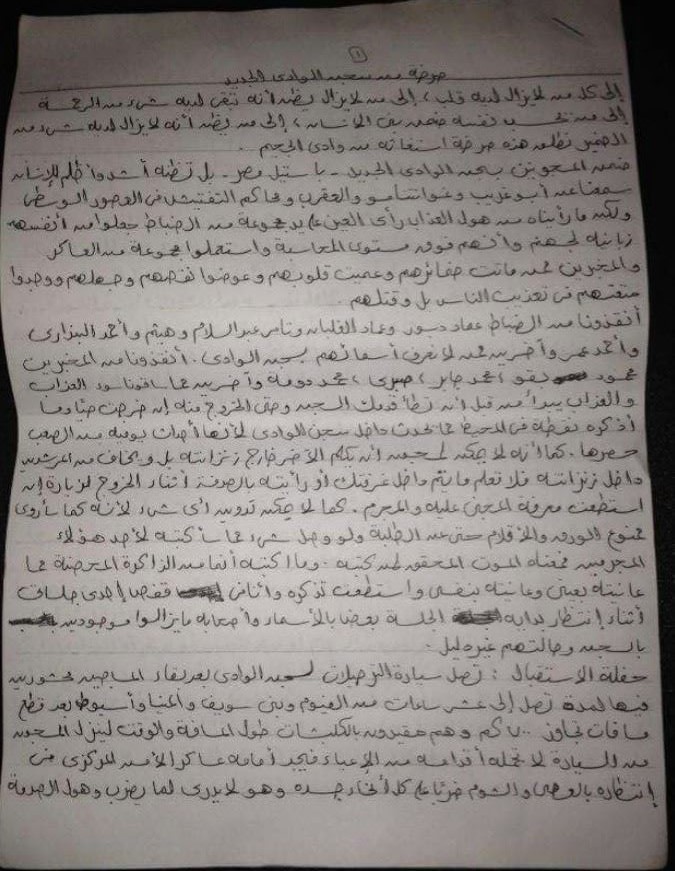 ١
صرخة من سجن الوادى الجديد
إلى كل من لايزال لديه قلب، إلى من لايزال يظن أنه تبقى لديه شىء من الرحمة
إلى من يحسب نفسه ضمن بنى الانسان، إلى من يظن أنه لايزال لديه شىء من
الضمير نطلق هذه صرخة استغاثة من وادى الجحيم.
ضمن المسجونين بسجن الوادى الجديد - باستيل مصر - بل تظنه أشد وأظلم للإنسان
سمعنا عن أبو غريب وغوانتنامو والعقرب ومحاكم التفتيش فى العصور الوسطى
ولكن ما رأيناه من هول العذاب رأى العين على يد مجموعة من الضباط جعلوا من أنفسهم
زبانية لجهنم وأنهم فوق مستوى المحاسبة واستعملوا مجموعة من العساكر
والمخبرين ممن ماتت ضمائرهم وعميت قلوبهم وعوضوا نقصهم وجهلهم ووجدوا
متعتهم فى تعذيب الناس بل وقتلهم.
أنقذونا من الضباط عماد دبور وعماد الغلبان وتامر عبد السلام وهيثم وأحمد البنزارى
وأحمد عمر وآخرين ممن لا نعرف أسمائهم بسجن الوادى. أنقذونا من المخبرين
محمود بقو، محمد جابر، صبرى، محمد دومة وآخرين مما ساقونا سوء العذاب
والعذاب يبدأ من قبل أن تطأ قدمك السجن وحتى الخروج منه إن خرجت حيًا وما
أذكره نقطة فى المحيط مما يحدث داخل سجن الوادى لأنها أحداث يومية من الصعب
حصرها. كما أنه لا يمكن لسجين أن يكلم الآخر خارج زنزانته بل ويخاف من المرشدين
داخل زنزانته فلا تعلم ما يتم داخل غرفتك أو رأيته بالصدفة أثناء الخروج لزيارة إن
استطعت معرفة المجنى عليه والمجرم. كما لا يمكن تدوين أى شىء لأنه كما سأروى
ممنوع الورق والأقلام حتى عن الطلبة ولو وصل شىء مما سأكتبه لأحد هؤلاء
المجرمين فمعناه الموت المحقق لمن كتبه. وما اكتبه أنما من الذاكرة الممرضة مما
عاينته بعينى وعانيته بنفسى واستطعت تذكره وأنا فى قفص إحدى جلساتى
أثناء إنتظار بداية الجلسة بعضًا بالأسماء وأصحابه مايزالوا موجودين
بالسجن وحالتهم خير دليل.
حفلة الاستقبال : تصل سيارة الترحيلات لسجن الوادى بعد بقاء المساجين محشورين
فيها لمدة تصل إلى عشر ساعات من الفيوم وبنى سويف والمنيا وأسيوط بعد قطع
مسافات تجاوز ٧٠٠ كم وهم مقيدون بالكلبشات طول المسافة والوقت لينزل المسجون
من السيارة لا تحمله أقدامه من الإعياء فيجد أمامه عساكر الأمن المركزى فى
إنتظاره بالعصى والشوم ضربًا على كل أنحاء جسده وهو لا يدرى لما يضرب وهول الصدمة